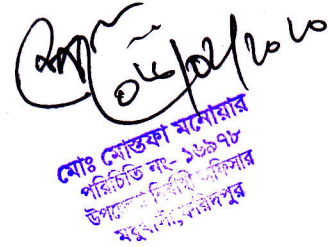 ০৮/০২/২০২০
মোঃ মোস্তফা মনোয়ার
পরিচিতি নং- ১৬৯৭৮
উপজেলা নির্বাহী অফিসার
মধুখালী, ফরিদপুর